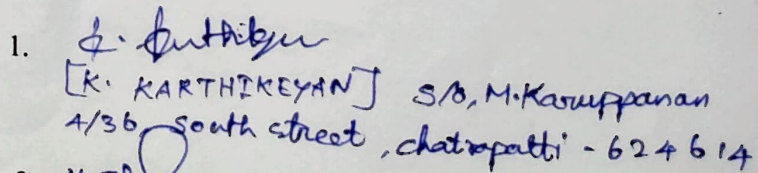 1. K. Karthikeyan
[K. KARTHIKEYAN] S/O, M. Karuppanan
4/36, South street, chatrapatti - 624614